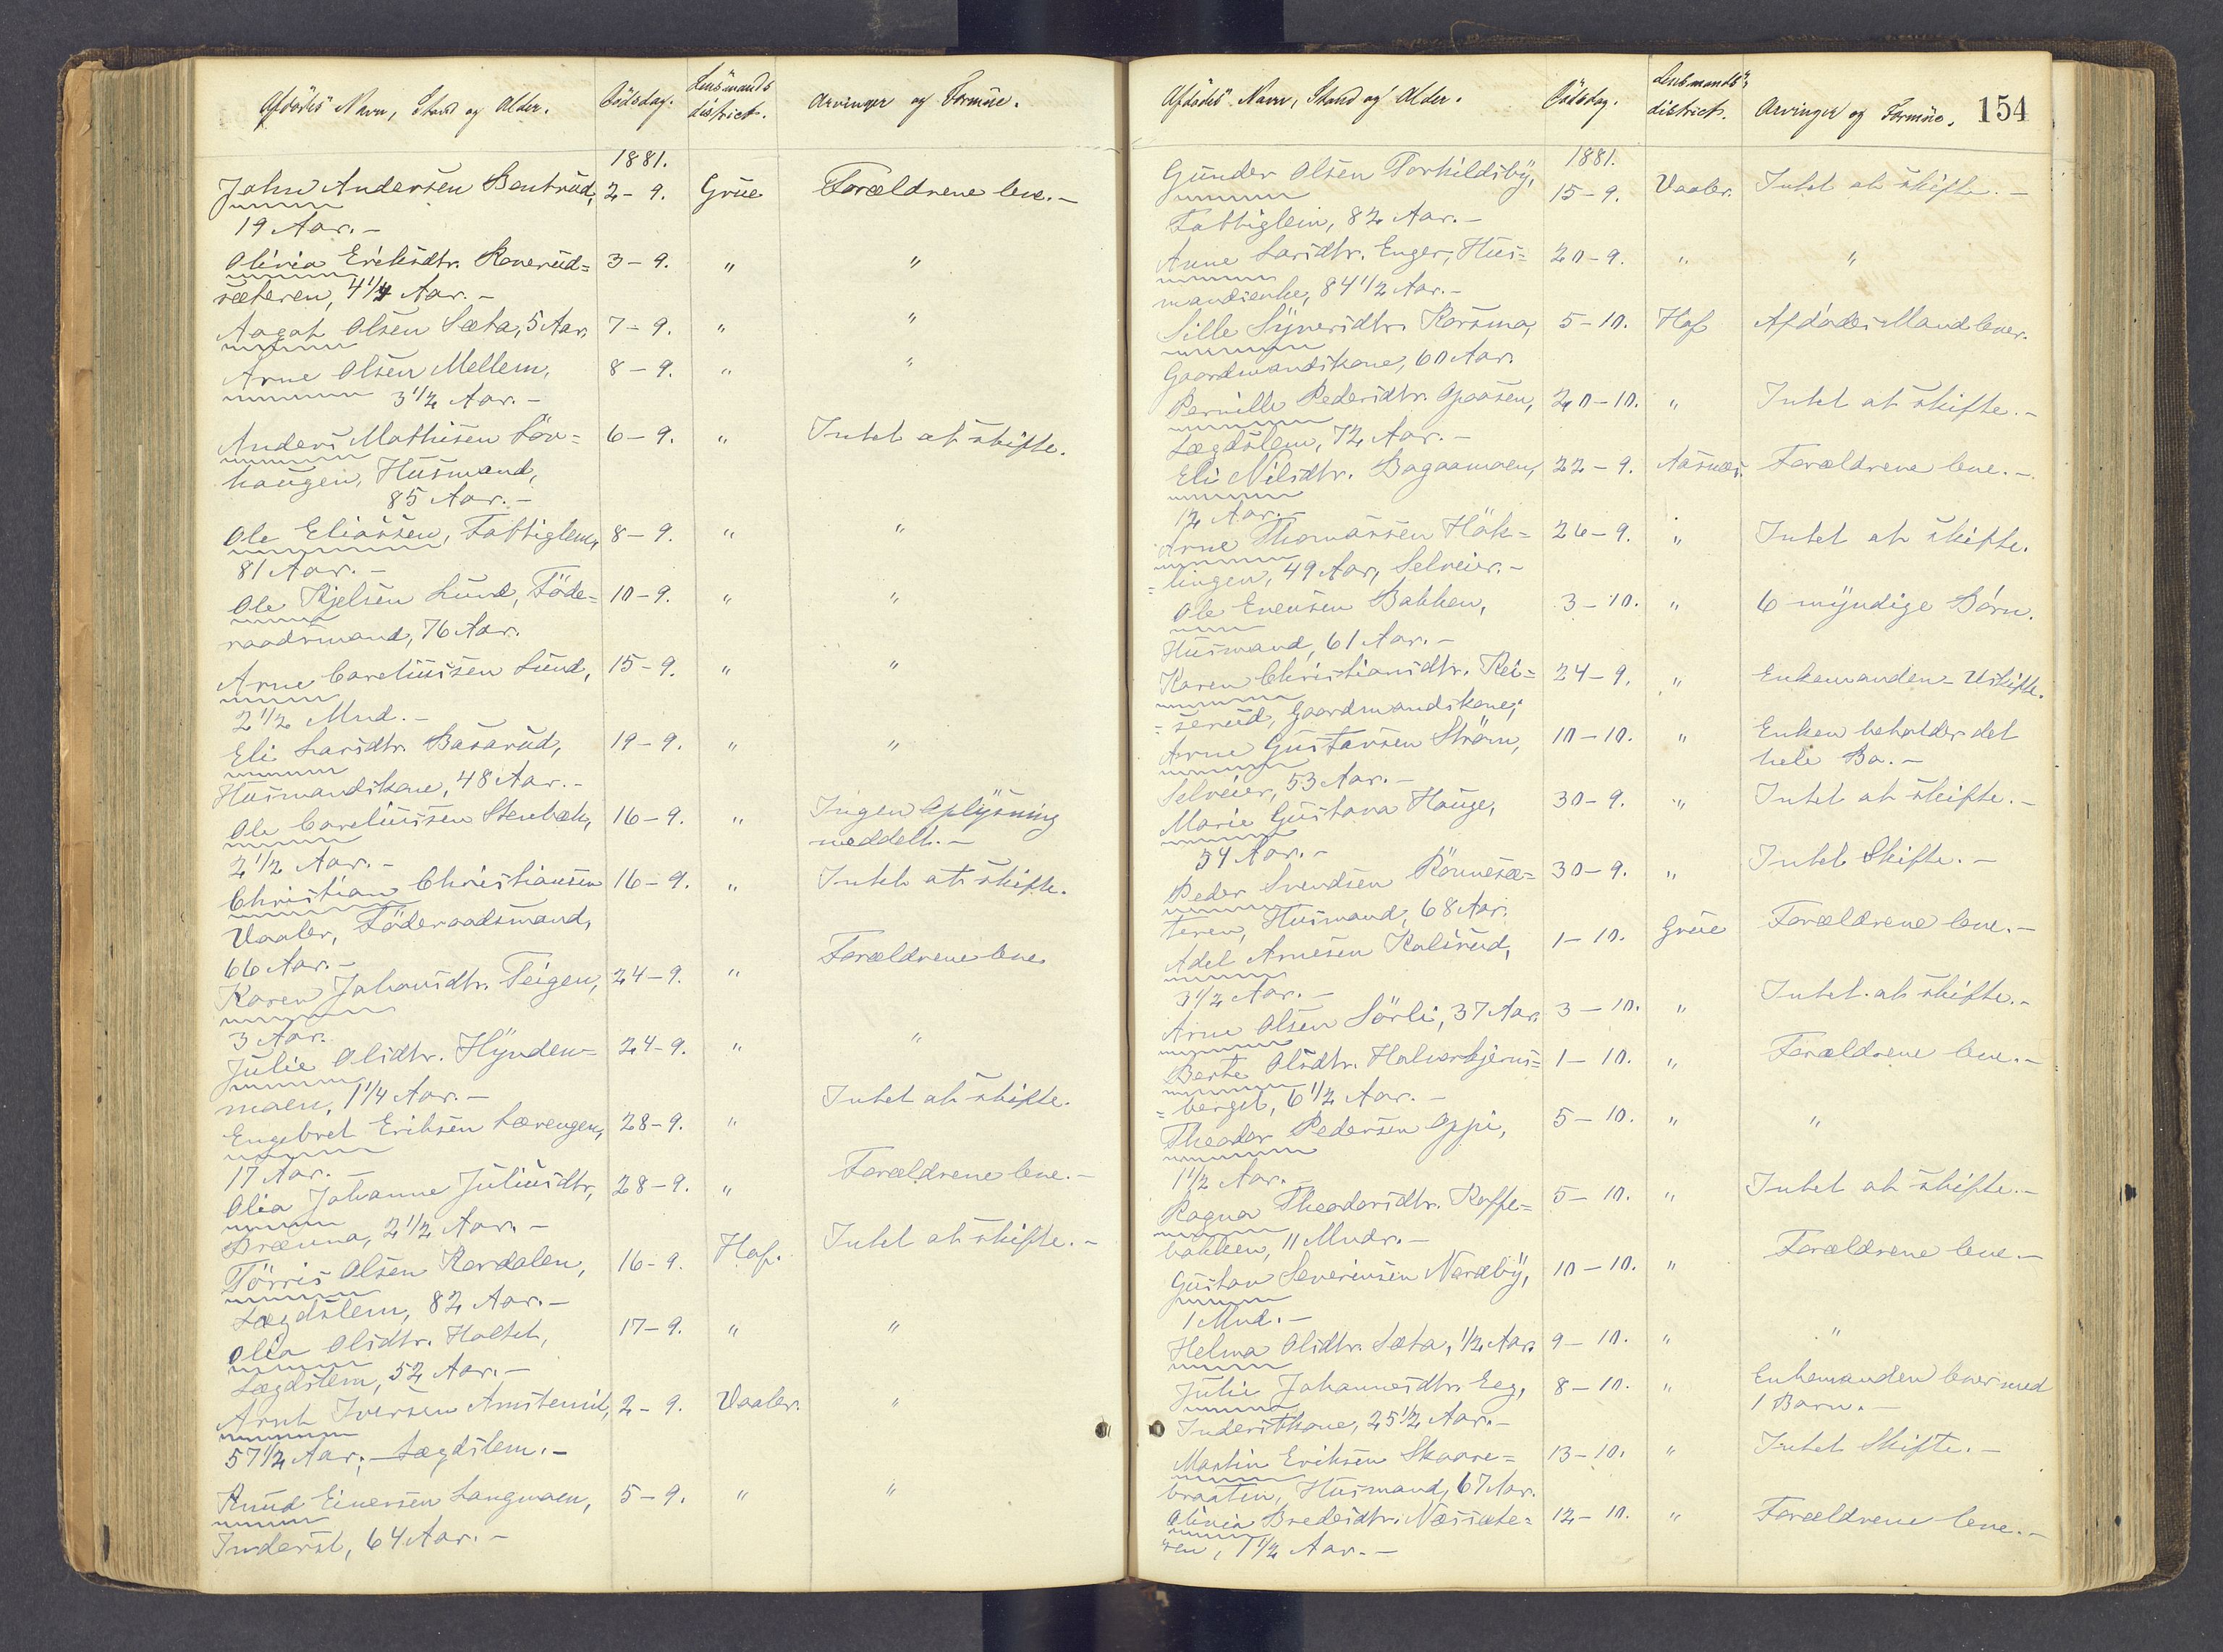 Afdødes Navn, Stand og Alder.
Dødsdag.
Lensmands
district.
Arvinger og Formue.
1881.
John Andersen Bentrud, 2-9. Grue Forældrene leve.-
19 Aar.-
Olivia Eriksdtr. Roverud= 3-9. " "
sæteren, 4 1/4 Aar.-
Aagot Olsen Sæta, 5 Aar, 7-9. " "
Arne Olsen Mellem, 8-9. " "
3 1/2 Aar.-
Anders Mathisen Löv= 6-9. " Intet at skifte.
haugen, Husmand,
85 Aar.-
Ole Eliassen, Fattiglem, 8-9. " "
81 Aar.-
Ole Kjelsen Lund, Föde= 10-9. " "
raadsmand, 76 Aar.
Arne Careliussen Lund, 15-9. " "
2 1/2 Mnd.-
Eli Larsdtr. Basarud, 19-9. " "
Husmandskone, 48 Aar.-
Ole Careliussen Stenbæk, 16-9. " Ingen Oplysning
2 1/2 Aar.- meddelt.-
Christian Christiansen 16-9. " Intet at skifte.
Vaaler, Föderaadsmand,
66 Aar.-
Karen Johansdtr. Teigen, 24-9. " Forældrene leve
3 Aar.
Julie Olsdtr. Hynden= 24-9. " "
moen, 1 1/4 Aar.-
Engebret Eriksen Lærengen, 28-9. " Intet at skifte.
17 Aar.-
Olia Johanne Juliusdtr, 28-9. " Forældrene leve.-
Brænna, 2 1/2 Aar.-
Törris Olsen Rordalen, 16-9. Hof. Intet at skifte.-
Lægdslem, 82 Aar.-
Olea Olsdtr. Holtet, 17-9. " "
Lægdslem, 52 Aar.-
Arnt Iversen 2-9. Vaaler. "
57 1/2 Aar,- Lægdslem.-
Knud Einersen Langmoen, 5-9. " "
Inderst, 64 Aar.-
Afdødes Navn, Stand og Alder.
Dødsdag.
Lensmands
district.
Arvinger og Formue.
154
1881.
Gunder Olsen Torkildsby, 15-9. Vaaler. Intet at skifte.-
Fattiglem, 82 Aar.-
Anne Larsdtr. Enger, Hus= 20-9. " "
mandsenke, 84 1/2 Aar.-
Sille Syversdtr. Korsmo, 5-10. Hof Afdødes Mand lever.
Gaardmandskone, 60 Aar.
Pernille Pedersdtr. Opaasen, 20-10. " Intet at skifte.-
Lægdslem, 72 Aar.-
Eli Nilsdtr. Bagaamoen, 22-9. Aasnæs. Forældrene leve.-
12 Aar.-
Arne Thomassen Hök= 26-9. " Intet at skifte.
=lingen, 49 Aar, Selveier.-
Ole Evensen Bakken, 3-10. " 6 myndige Börn.
Husmand, 61 Aar.-
Karen Christiansdtr. Rei= 24-9. " Enkemanden- Uskifte.
=serud, Gaardmandskone,
Arne Gustavsen Ström, 10-10. " Enken beholder det
Selveier, 53 Aar.- hele Bo.-
Marie Gustava Hauge, 30-9. " Intet at skifte.-
54 Aar.-
Peder Svendsen Rönnesæ= 30-9. " Intet Skifte.-
teren, Husmand, 68 Aar.
Adel Arnesen Kalsrud, 1-10. Grue Forældrene leve.-
3 1/2 Aar.-
Arne Olsen Sörli, 37 Aar. 3-10. " Intet at skifte.-
Berte Olsdtr. Halvorkjerns= 1-10. " Forældrene leve.-
=berget, 6 1/2 Aar.-
Theodor Pedersen Oppi, 5-10. " "
1 1/2 Aar.-
Ragna Theodorsdtr. Kaffe= 5-10. " Intet at skifte.-
bakken, 11 Mndr.-
Gustav Severinsen Nordby, 10-10. " Forældrene leve.-
1 Mnd.-
Helma Olsdtr. Sæta, 1/2 Aar. 9-10. " "
Julie Johannesdtr. Eeg, 8-10. " Enkemanden lever med
Inderstkone, 25 1/2 Aar.- 1 Barn.-
Martin Eriksen Skaare= 13-10. " Intet Skifte.-
braaten, Husmand, 67 Aar.
Olivia Bredesdtr. Næssæte= 12-10. " Forældrene leve.-
ren, 1 1/2 Aar.-